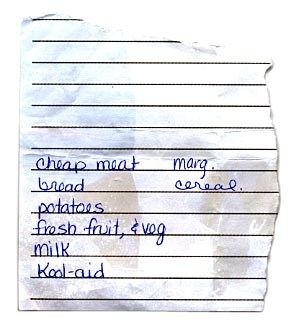 cheap meat marg.
bread cereal.
potatoes
fresh fruit, & veg
milk
Kool-aid